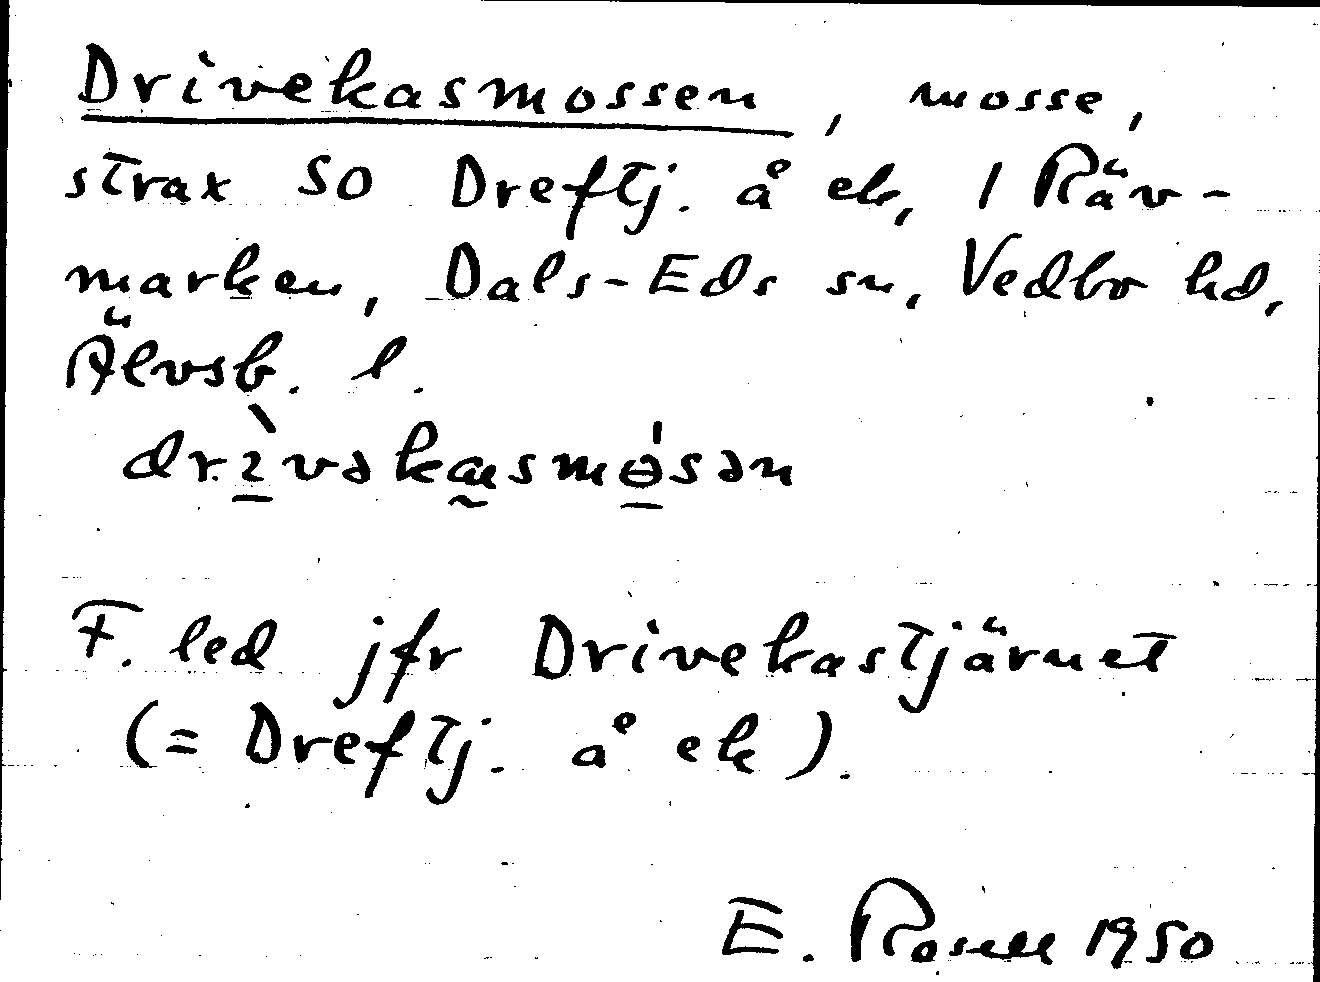 Drivekasmossen, mosse,
strax SO Dreftj. å ek, 1 Räv-
marken, Dals-Eds sn, Vedbo hd,
Älvsb. l.
F. led jfr Drivekastjärnet
(= Dreftj. å ek).
E. Rosell 1950